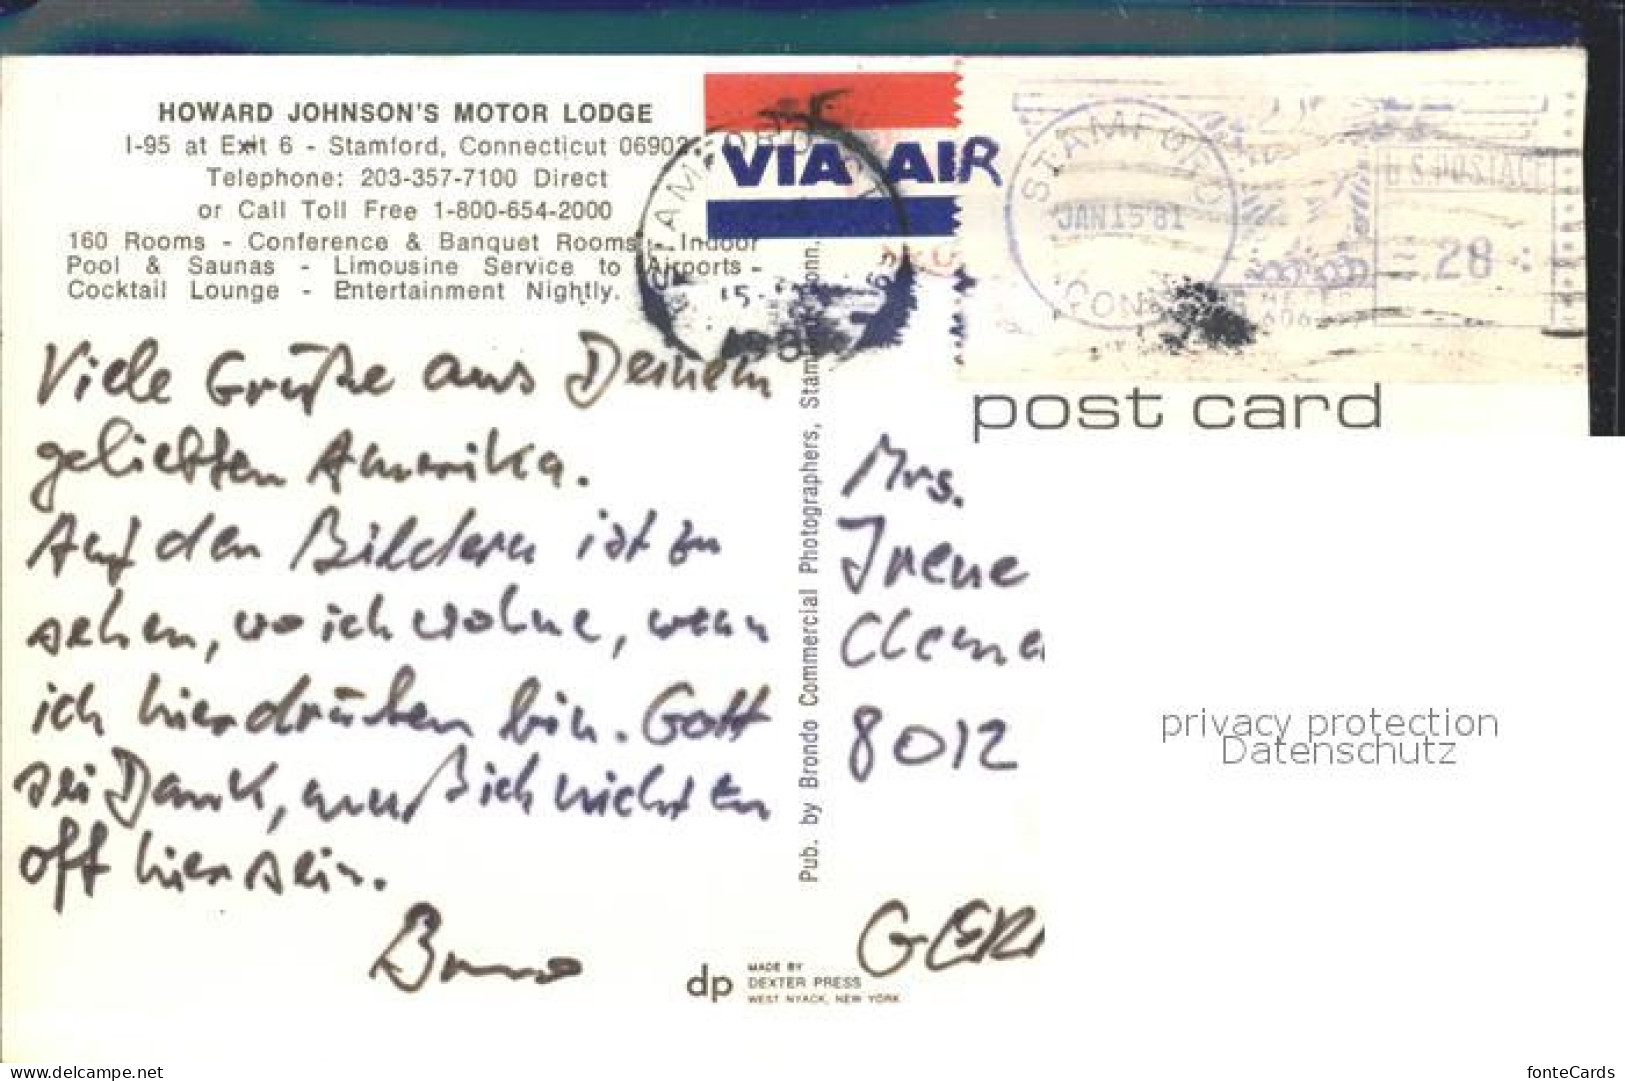 HOWARD JOHNSON'S MOTOR LODGE
I-95 at Exit 6 - Stamford, Connecticut 06902
Telephone: 203-357-7100 Direct
or Call Toll Free 1-800-654-2000
160 Rooms - Conference & Banquet Rooms - Indoor
Pool & Saunas - Limousine Service to Airports -
Cocktail Lounge - Entertainment Nightly.
VIA AIR
STAMFORD
JAN 15 '81
CONN
U.S. POSTAGE
28
post card
Viele Grüße aus Deinem
geliebten Amerika.
Auf den Bildern ist zu
sehen, wo ich wohne, wenn
ich hierdrüben bin. Gott
sei Dank, muß ich nicht zu
oft hier sein.
Bruno
Pub. by Brondo Commercial Photographers, Stam Conn.
Mrs.
Irene
Cleme
8012
GER
dp
MADE BY
DEXTER PRESS
WEST NYACK, NEW YORK
privacy protection
Datenschutz
www.delcampe.net
fonteCards